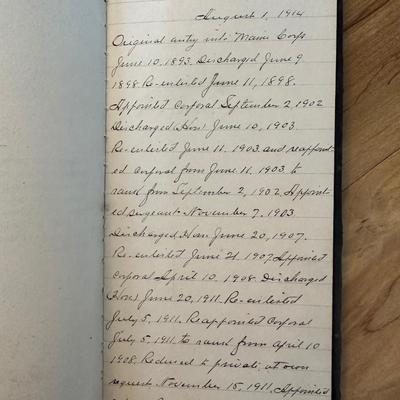 August 1, 1914
Original entry into Marine Corps
June 10, 1893. Discharged June 9
1898. Re-enlisted June 11, 1898.
Appointed Corporal September 2, 1902
Discharged (Hon) June 10, 1903.
Re-enlisted June 11. 1903 and reappoint-
ed Corporal from June 11. 1903 to
rank from September 2, 1902. Appoint-
ed Sergeant November 7. 1903.
Discharged Hon June 20, 1907.
Re-enlisted June 21 1907 Appointed
Corporal April 10. 1908. Discharged
(Hon) June 20, 1911. Re-enlisted
July 5, 1911. Reappointed Corporal
July 5, 1911 to rank from April 10
1908. Reduced to private at own
request November 15, 1911. Appointed